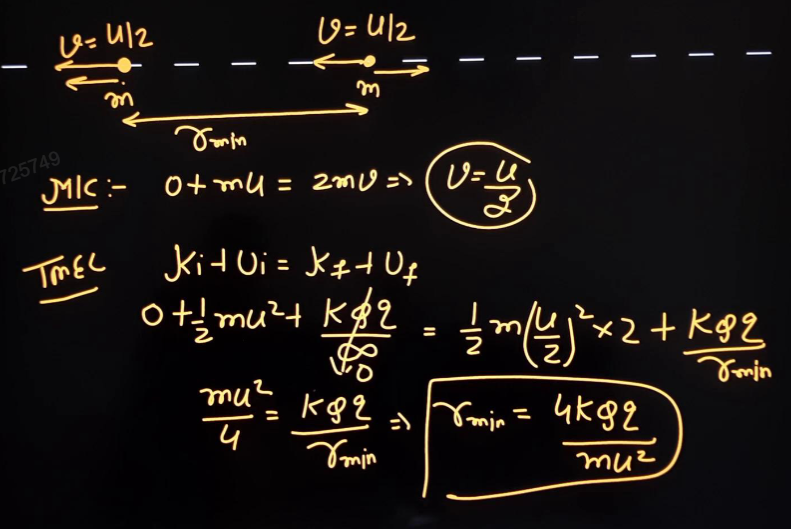 v = u/2 v = u/2
m m
r min
725749
MIC :- 0 + mu = 2mv => v = u/2
TMEC Ki + Ui = Kf + Uf
0 + 1/2 mu² + KQq/∞ = 1/2 m(u/2)² × 2 + KQq/r min
0
mu²/4 = KQq/r min => r min = 4KQq/mu²